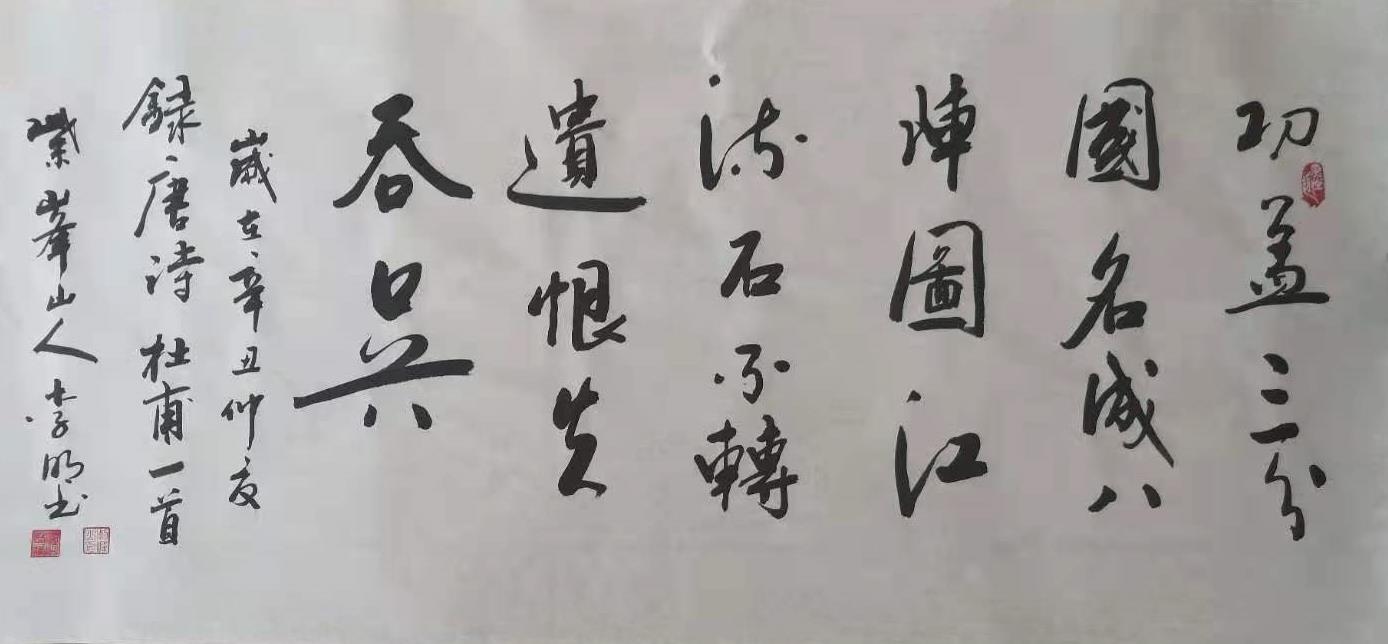 功盖三分
國名成八
陣圖江
流石不轉
遺恨失
吞吳
歲在辛丑仲夏
録唐詩杜甫一首
紫峯山人李明书